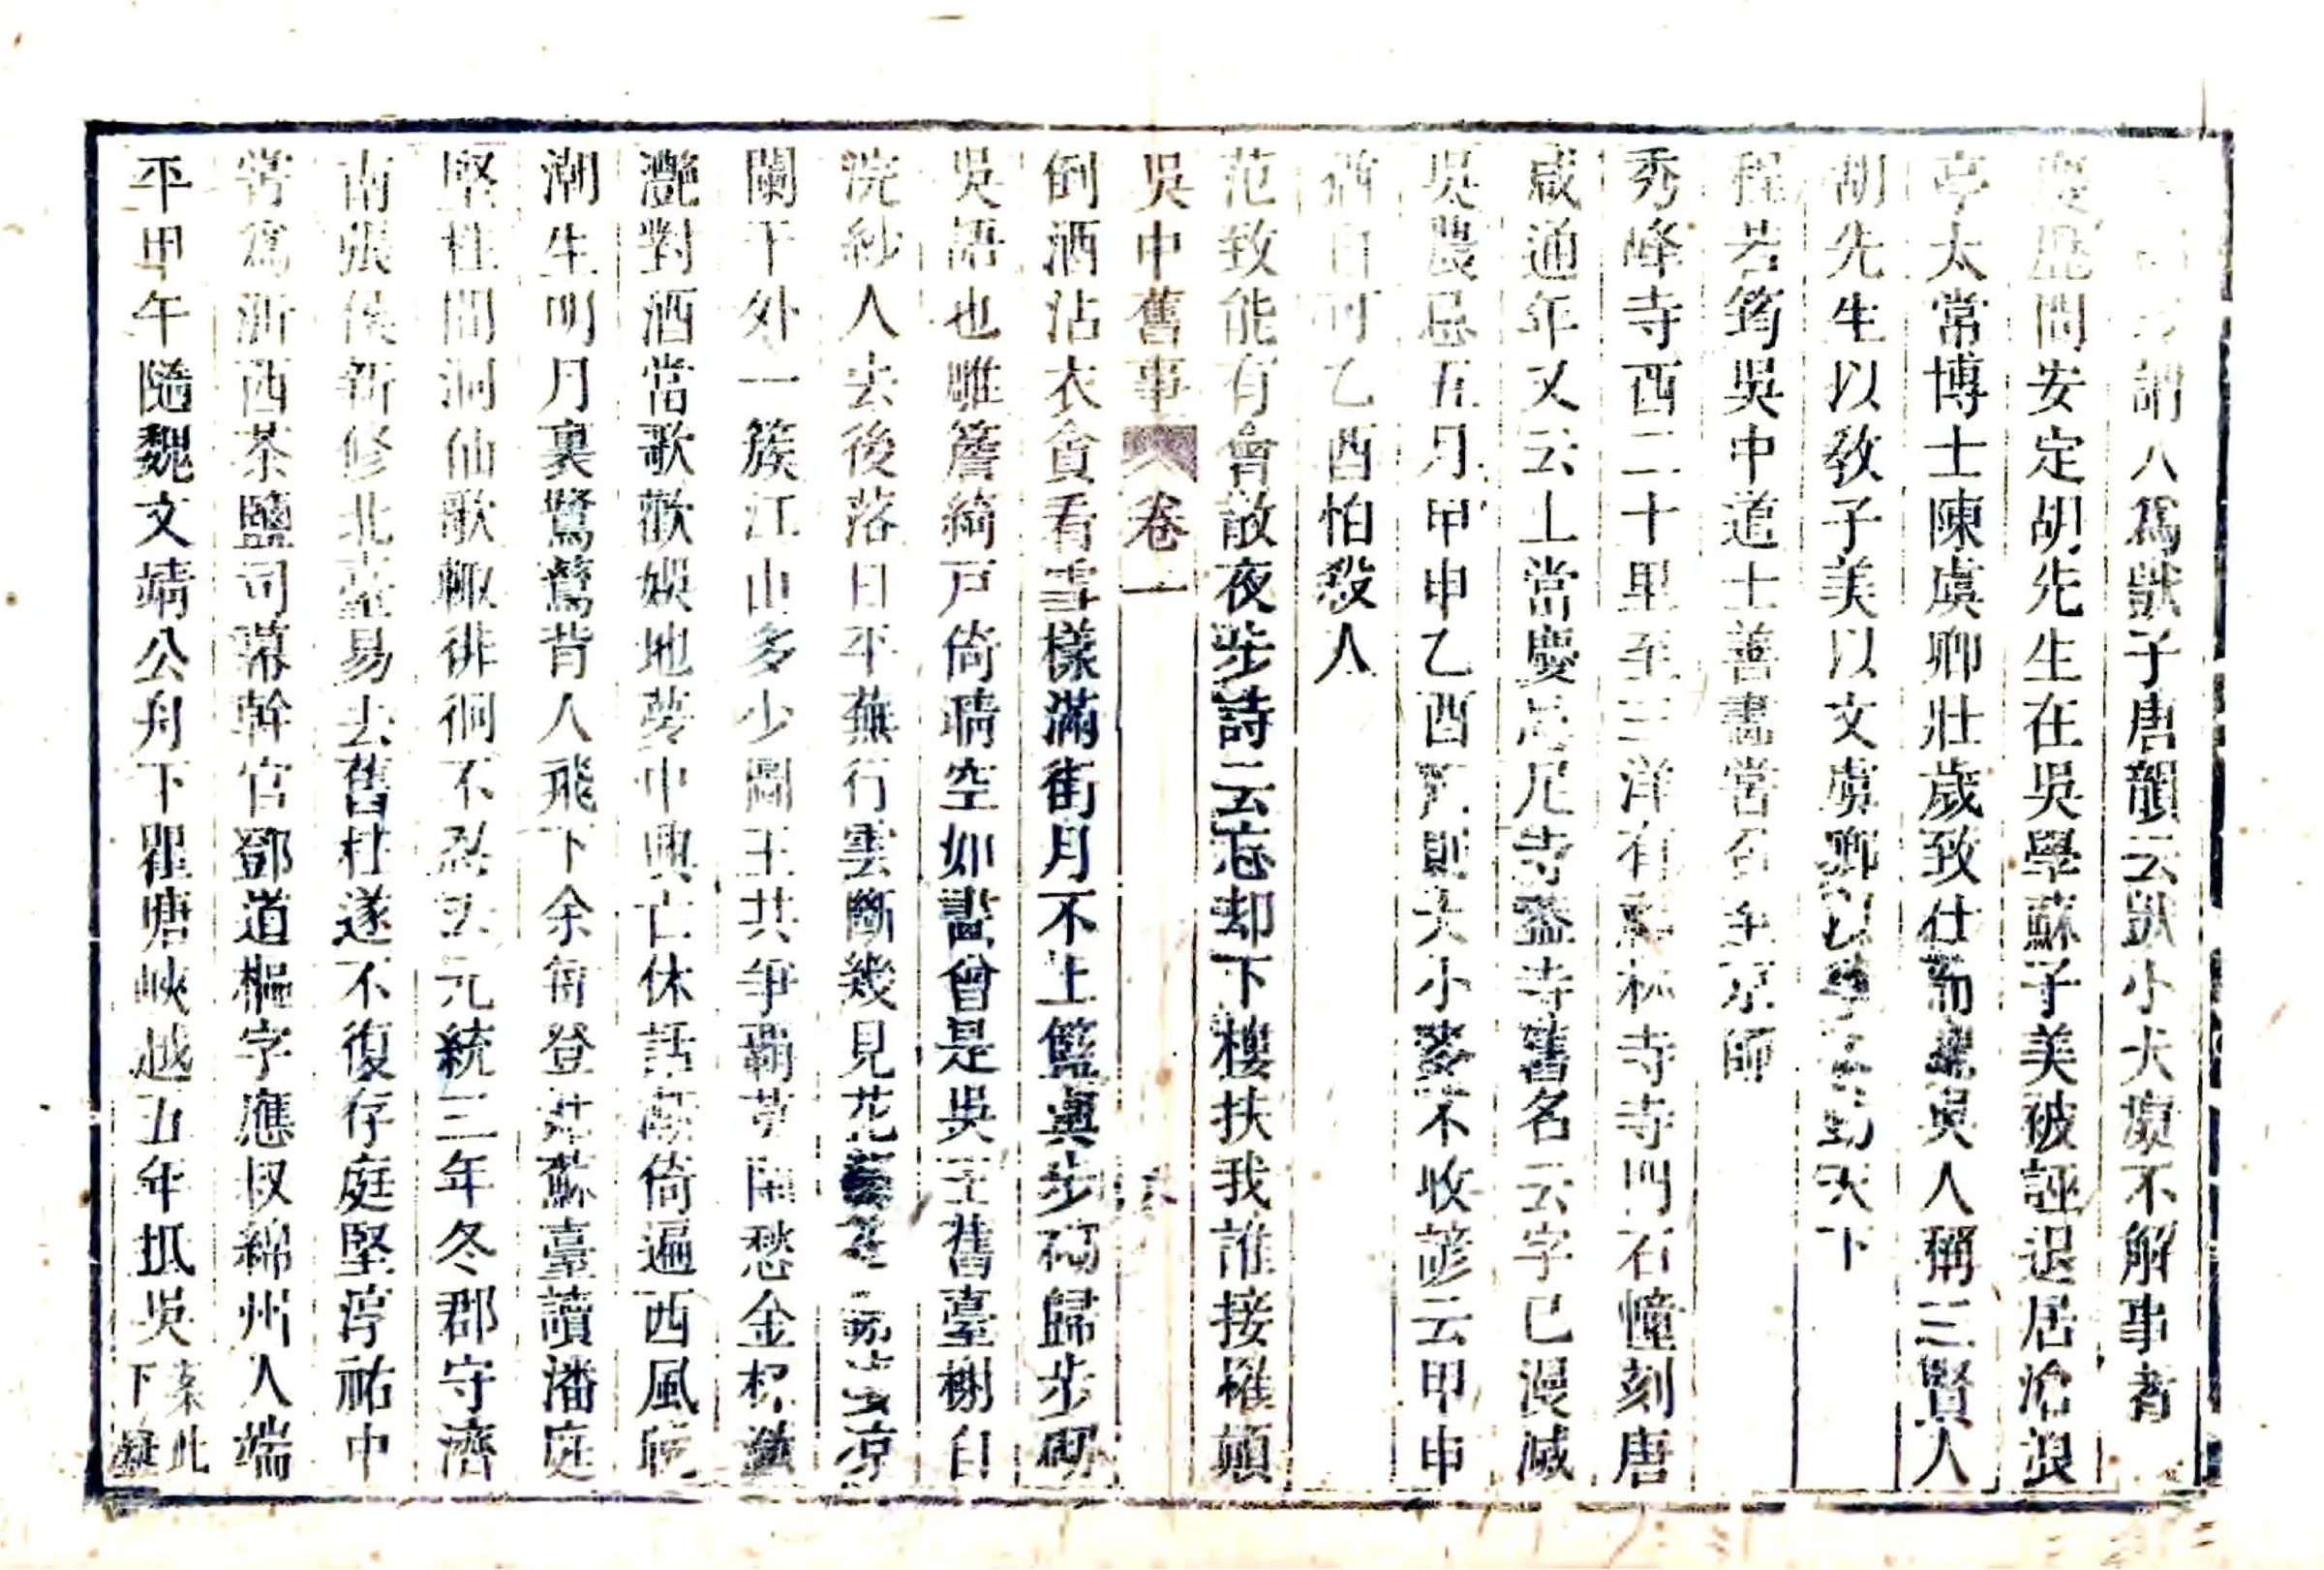 謂人爲獃子唐韻云獃小犬癡不解事者
慶歷間安定胡先生在吳學蘇子美被誣退居滄浪
亭太常博士陳虞卿壯歲致仕而歸吳人稱三賢人
胡先生以敎子美以文虞卿以天下
程若筠吳中道士善畫嘗召至京師
秀峰寺西二十里至三洋有寺寺門石幢刻唐
咸通年又云上當慶尼寺蓋寺舊名云字已漫滅
吳農忌五月甲申乙酉則大小麥不收諺云甲申
猶自可乙酉怕殺人
范致能有會散夜步詩云忘却下樓扶我誰接䍦顚
吳中舊事 卷一
倒酒沾衣貪看雪樣滿街月不上籃輿步砌歸步砌
吳語也雕簷綺戶倚晴空如畫曾是吳王舊臺榭自
浣紗人去後落日平蕪行雲斷幾見花凉
闌干外一簇江山多少圖王共爭霸莫閑愁金杯瀲
灧對酒當歌歡娛地夢中興亡休話倚遍西風晚
潮生明月裏鷺鷥背人飛下余嘗登姑蘇臺讀潘庭
堅柱間洞仙歌輙徘徊不忍去元統三年冬郡守濟
南張侯新修北臺易去舊柱遂不復存庭堅淳祐中
嘗爲浙西茶鹽司幕幹官鄧道樞字應叔綿州人端
平甲午隨魏文靖公舟下瞿唐峽越五年抵吳案此下疑